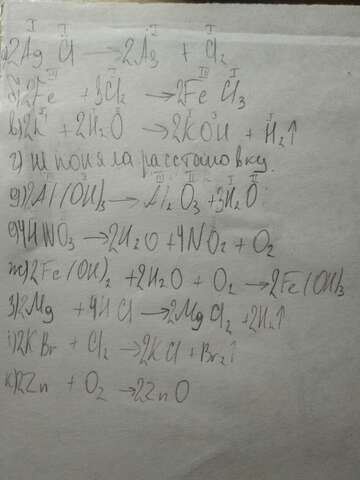 а) 2AgCl → 2Ag + Cl₂
б) 2Fe + 3Cl₂ → 2FeCl₃
в) 2K + 2H₂O → 2KOH + H₂↑
г) не поняла расстановку.
д) 2Al(OH)₃ → Al₂O₃ + 3H₂O
е) 4HNO₃ → 2H₂O + 4NO₂ + O₂
ж) 2Fe(OH)₂ + 2H₂O + O₂ → 2Fe(OH)₃
з) 2Mg + 4HCl → 2MgCl₂ + 2H₂↑
i) 2KBr + Cl₂ → 2KCl + Br₂↑
к) 2Zn + O₂ → 2ZnO